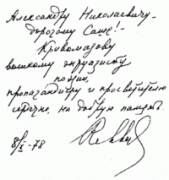 Александру Николаевичу -
дорогому Саше! -
Кривомазову
великому энтузиасту
поэзии,
пропагандисту и просветителю
сердечно, на добрую память.
8/X - 78